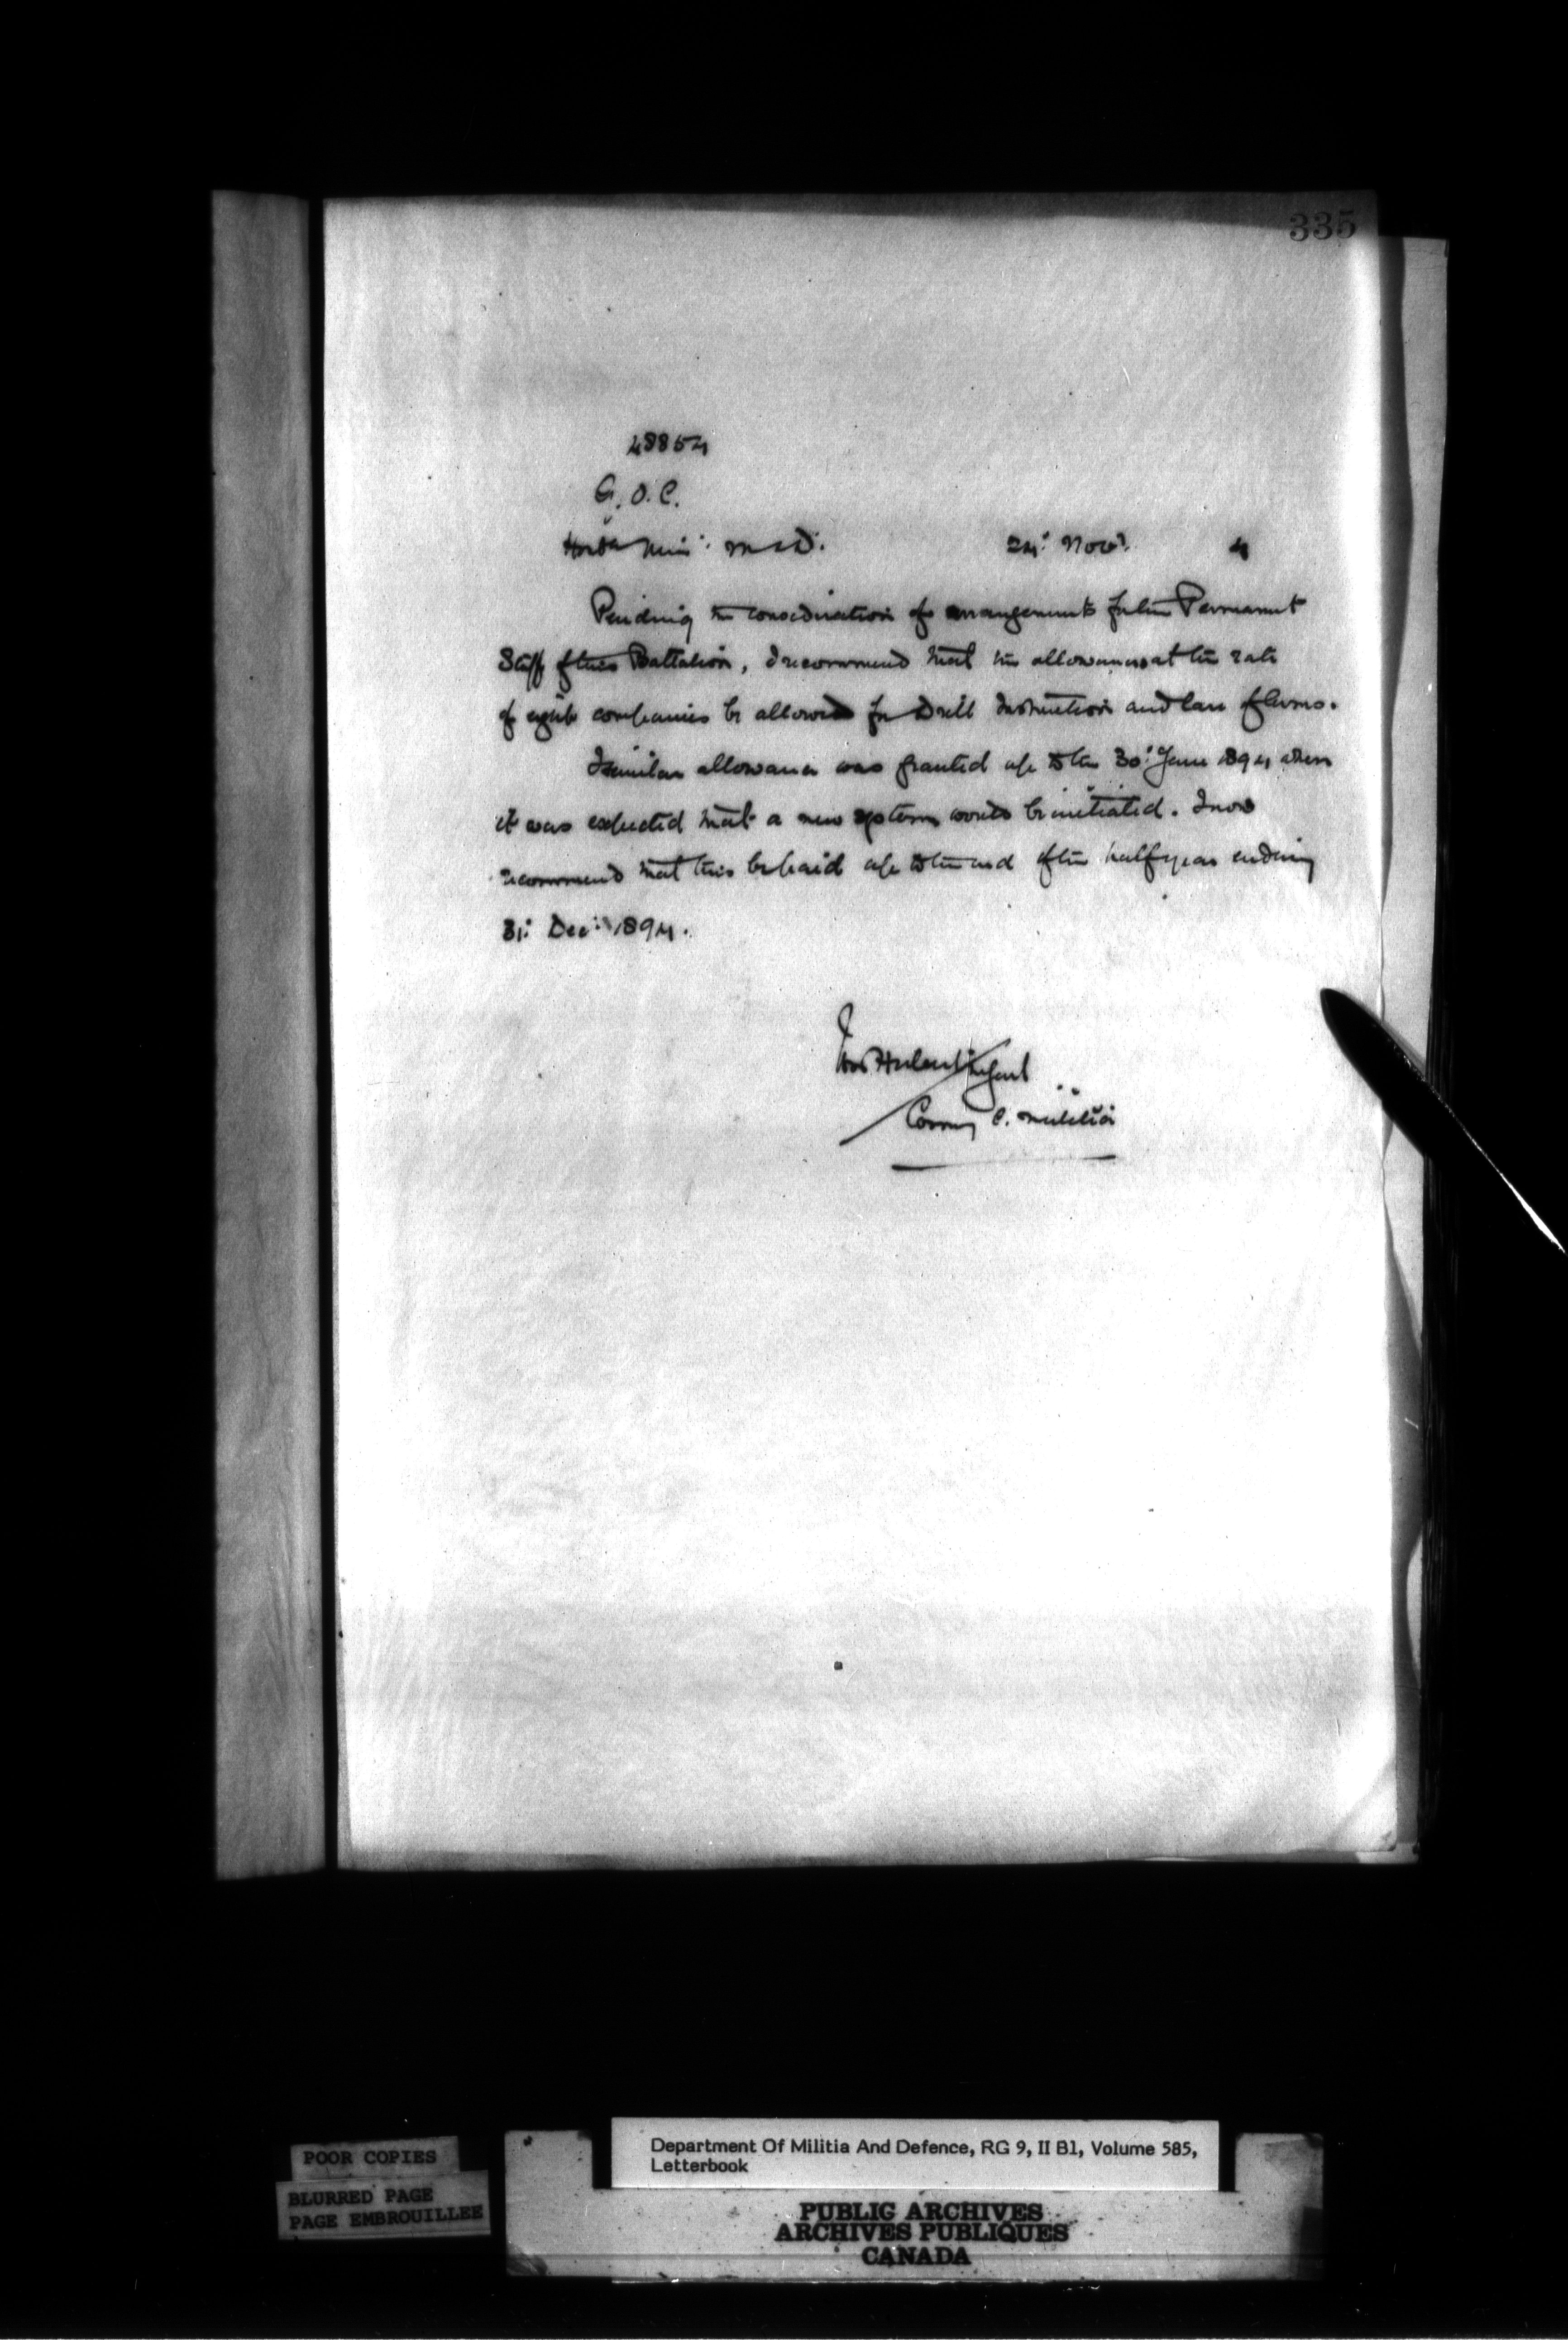 335
48854
G.O.C.
Honble Min: M & D. 24: Novr. 4
Pending the consideration of arrangements for the Permanent
Staff of this Battalion, I recommend that the allowances at the rate
of eight companies be allowed for Drill Instruction and care of Arms.
A similar allowance was granted up to the 30: June 1894 when
it was expected that a new system would be initiated. I now
recommend that this be paid up to the end of the half year ending
31: Dec: 1894.
Ivor Herbert
Comg C. Militia
POOR COPIES
BLURRED PAGE
PAGE EMBROUILLEE
Department Of Militia And Defence, RG 9, II B1, Volume 585,
Letterbook
PUBLIC ARCHIVES
ARCHIVES PUBLIQUES
CANADA